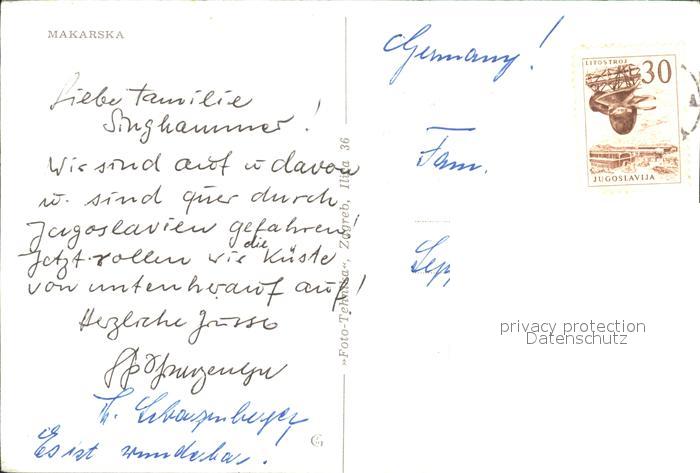 MAKARSKA
Liebe Familie
Singhammer!
Wir sind auf u davon
u. sind quer durch
Jugoslavien gefahren!
Jetzt rollen wir die Küste
von untenherauf auf!
Herzliche Grüsse
Es ist wunderbar.
»Foto-Tehnika«, Zagreb, Ilica 36
Germany!
Fam.
LITOSTROJ
30
JUGOSLAVIJA
privacy protection
Datenschutz